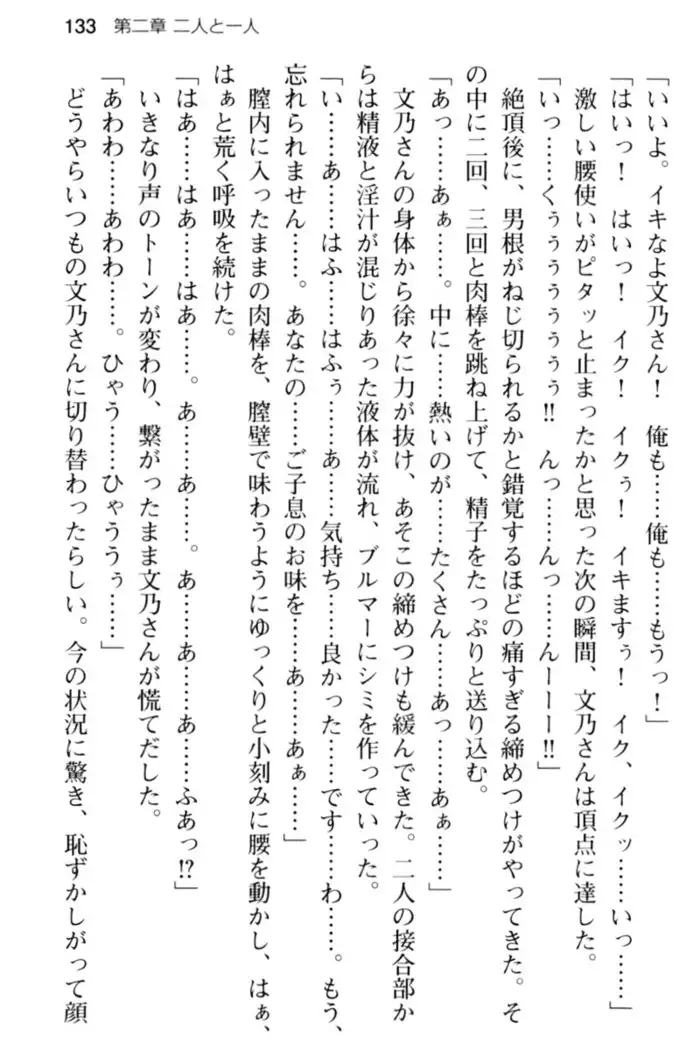 133 第二章 二人と一人
「いいよ。イキなよ文乃さん！　俺も……俺も……もうっ！」
「はいっ！　はいっ！　イク！　イクぅ！　イキますぅ！　イク、イクッ……いっ……」
激しい腰使いがピタッと止まったかと思った次の瞬間、文乃さんは頂点に達した。
「いっ……くぅぅぅぅぅぅぅ!!　んっ……んっ……んーーー!!」
絶頂後に、男根がねじ切られるかと錯覚するほどの痛すぎる締めつけがやってきた。そ
の中に二回、三回と肉棒を跳ね上げて、精子をたっぷりと送り込む。
「あっ……あぁ……。中に……熱いのが……たくさん……あっ……あぁ……」
文乃さんの身体から徐々に力が抜け、あそこの締めつけも緩んできた。二人の接合部か
らは精液と淫汁が混じりあった液体が流れ、ブルマーにシミを作っていった。
「い……あ……はふ……はふぅ……あ……気持ち……良かった……です……わ……。もう、
忘れられません……。あなたの……ご子息のお味を……あ……あぁ……」
膣内に入ったままの肉棒を、膣壁で味わうようにゆっくりと小刻みに腰を動かし、はぁ、
はぁと荒く呼吸を続けた。
「はあ……はあ……はあ……。あ……あ……。あ……あ……あ……ふあっ!?」
いきなり声のトーンが変わり、繋がったまま文乃さんが慌てだした。
「あわわ……あわわ……。ひゃう……ひゃううぅ……」
どうやらいつもの文乃さんに切り替わったらしい。今の状況に驚き、恥ずかしがって顔